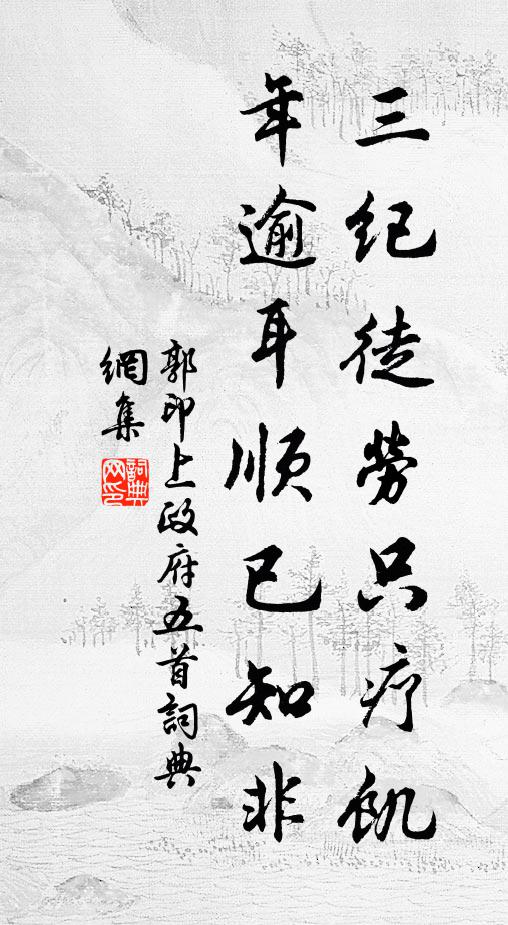 三纪徒劳只疗饥
年逾耳顺已知非
郭印上政府五首詞典
網集
詞典
网印